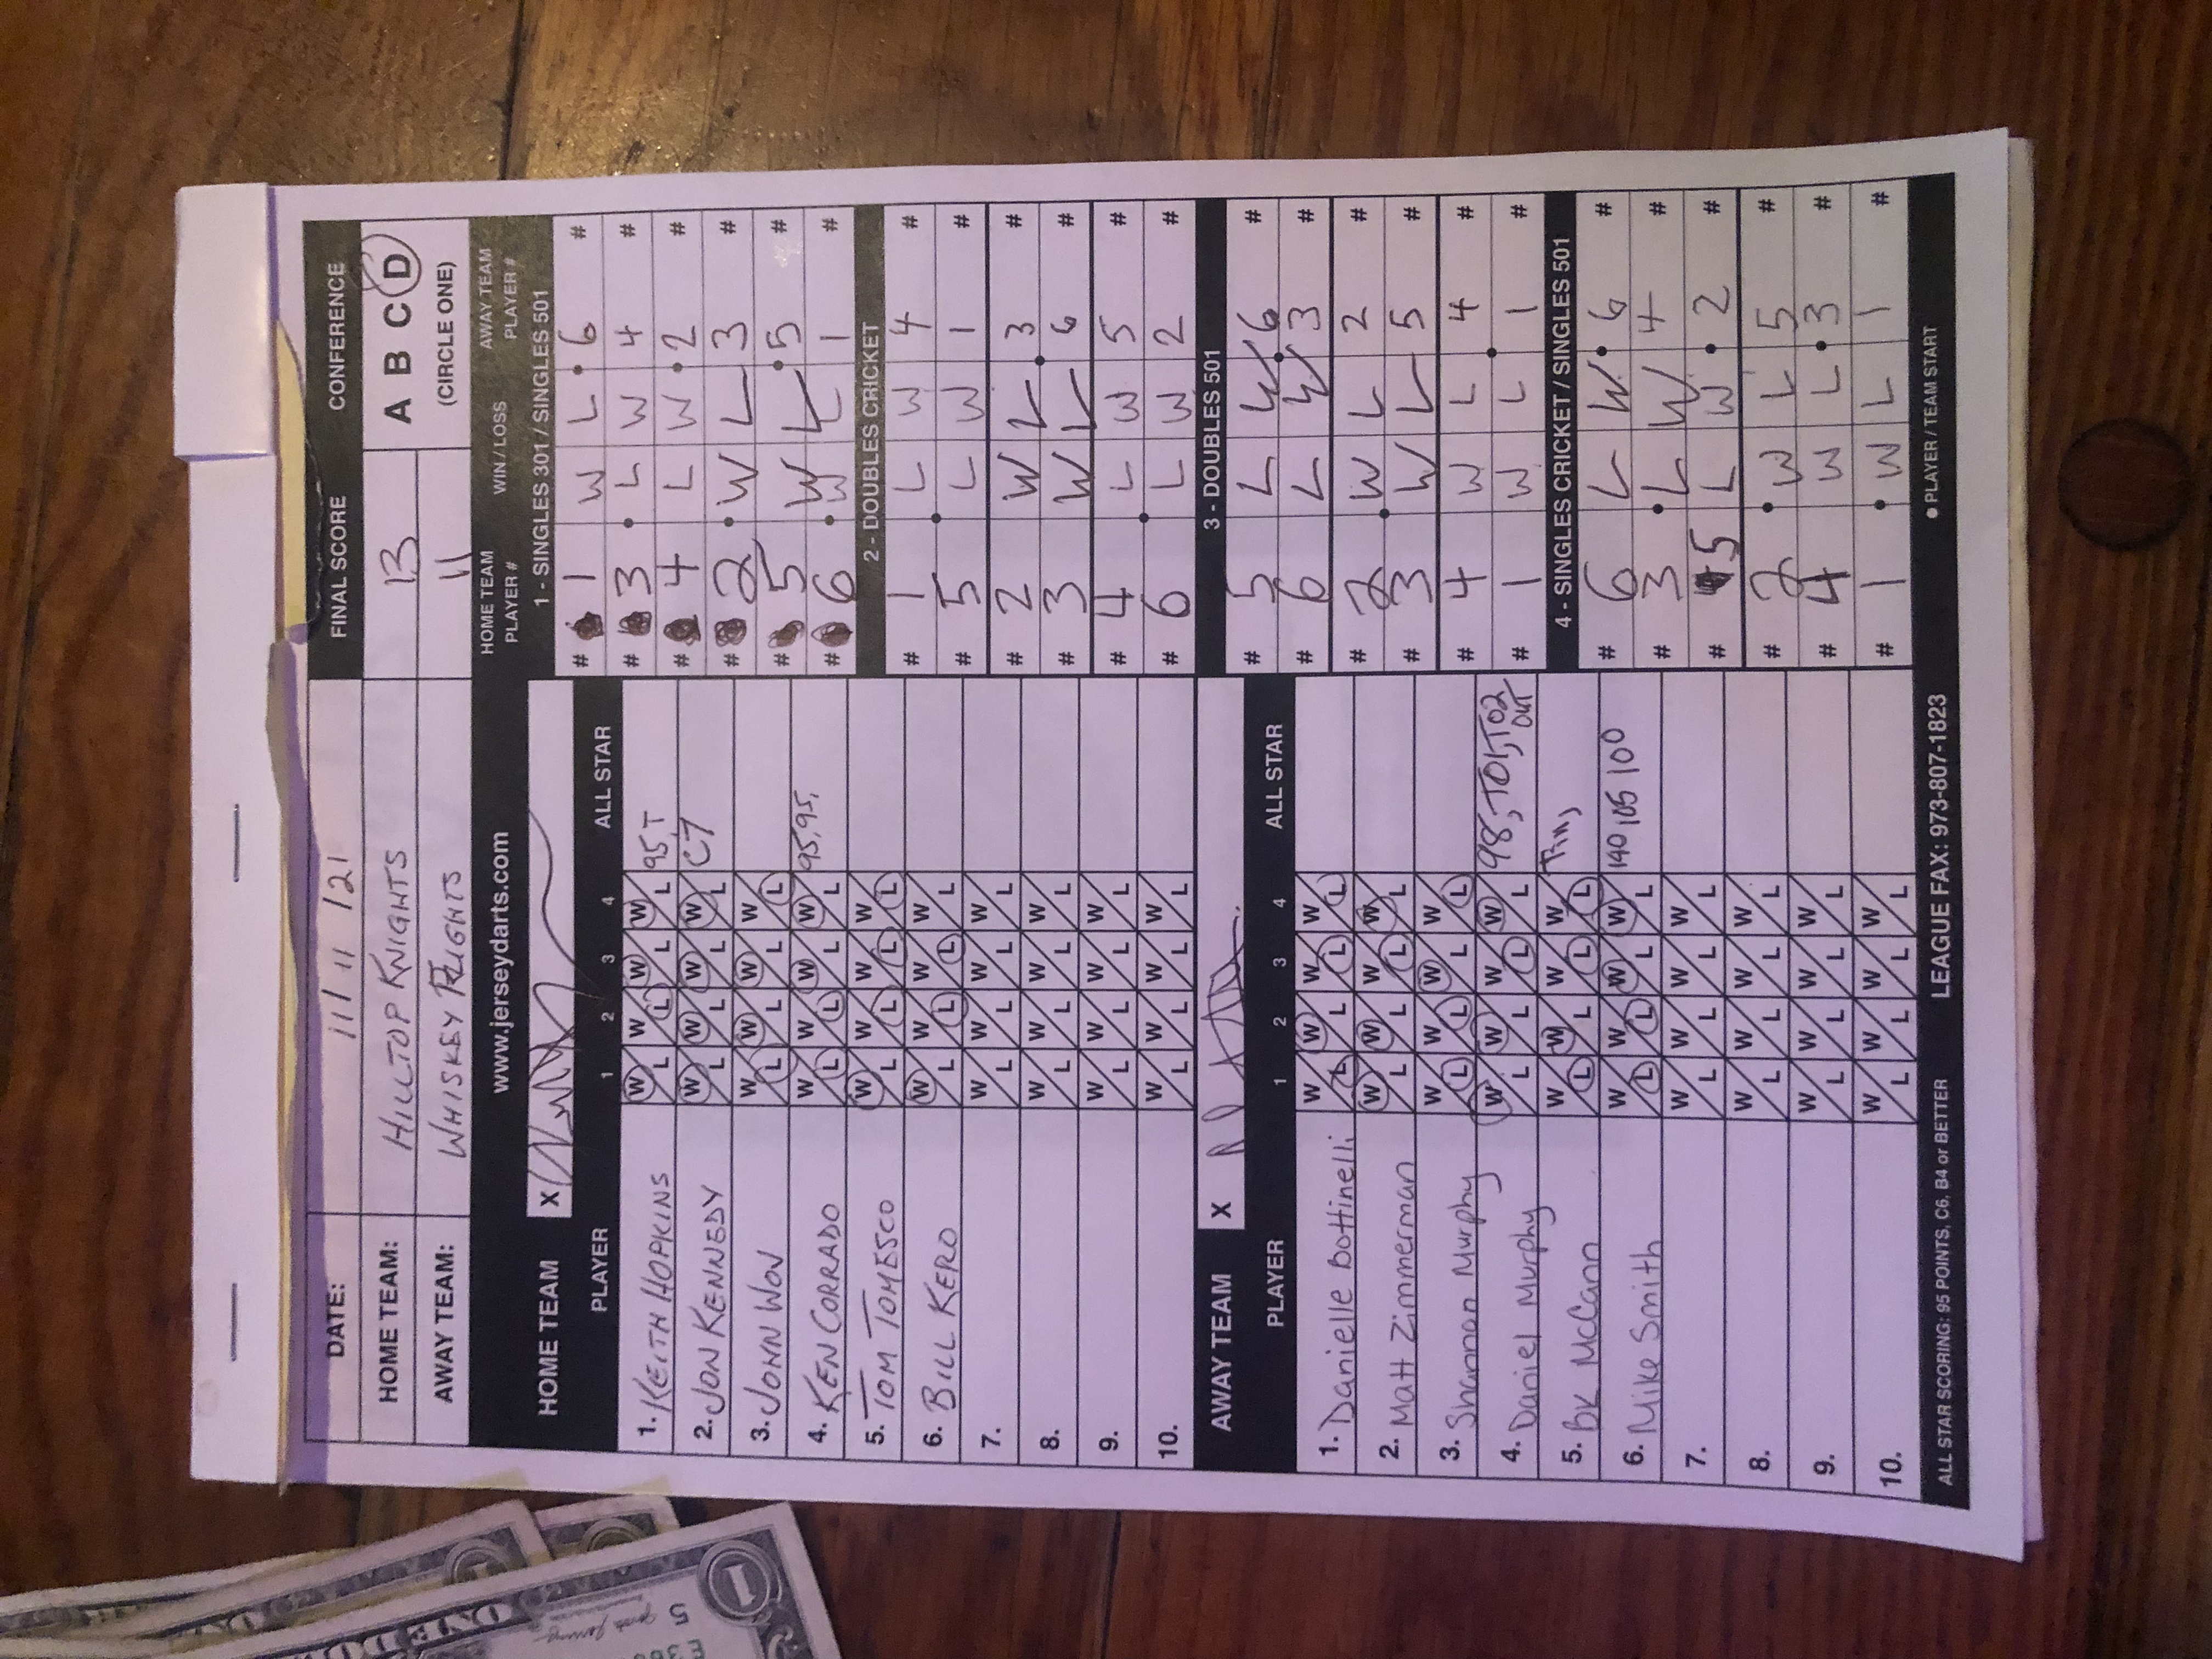 DATE: 11/11/21 FINAL SCORE CONFERENCE
HOME TEAM: HILLTOP KNIGHTS 13 A B C D
AWAY TEAM: WHISKEY 11 (CIRCLE ONE)
www.jerseydarts.com
HOME TEAM X
PLAYER 1 2 3 4 ALL STAR
1. KEITH HOPKINS W/L W/L W/L W/L 95, T
2. JON KENNEDY W/L W/L W/L W/L C7
3. JOHN W/L W/L W/L W/L
4. KEN CORRADO W/L W/L W/L W/L 95, 95,
5. TOM TOMESCO W/L W/L W/L W/L
6. BILL KERO W/L W/L W/L W/L
7. W/L W/L W/L W/L
8. W/L W/L W/L W/L
9. W/L W/L W/L W/L
10. W/L W/L W/L W/L
AWAY TEAM X
PLAYER 1 2 3 4 ALL STAR
1. Danielle Bottinelli W/L W/L W/L W/L
2. Matt Zimmerman W/L W/L W/L W/L
3. Shannan Murphy W/L W/L W/L W/L
4. Daniel Murphy W/L W/L W/L W/L 98, T01, T02 out
5. BK McCann W/L W/L W/L W/L
6. Mike Smith W/L W/L W/L W/L 140 105 100
7. W/L W/L W/L W/L
8. W/L W/L W/L W/L
9. W/L W/L W/L W/L
10. W/L W/L W/L W/L
HOME TEAM PLAYER # WIN / LOSS AWAY TEAM PLAYER #
1 - SINGLES 301 / SINGLES 501
# 1 W L • 6 #
# 3 • L W 4 #
# 4 L W • 2 #
# 2 • W L 3 #
# 5 W L • 5 #
# 6 • W L 1 #
2 - DOUBLES CRICKET
# 1 L W 4 #
# 5 • L W 1 #
# 2 W L 3 #
# 3 W L • 6 #
# 4 L W 5 #
# 6 • L W 2 #
3 - DOUBLES 501
# 5 L W 6 #
# 6 L W • 3 #
# 2 W L 2 #
# 3 • W L 5 #
# 4 W L 4 #
# 1 W L • 1 #
4 - SINGLES CRICKET / SINGLES 501
# 6 L W • 6 #
# 3 • L W 4 #
# 5 L W • 2 #
# 2 • W L 5 #
# 4 W L • 3 #
# 1 • W L 1 #
ALL STAR SCORING: 95 POINTS, C6, B4 or BETTER LEAGUE FAX: 973-807-1823 ● PLAYER / TEAM START
ONE